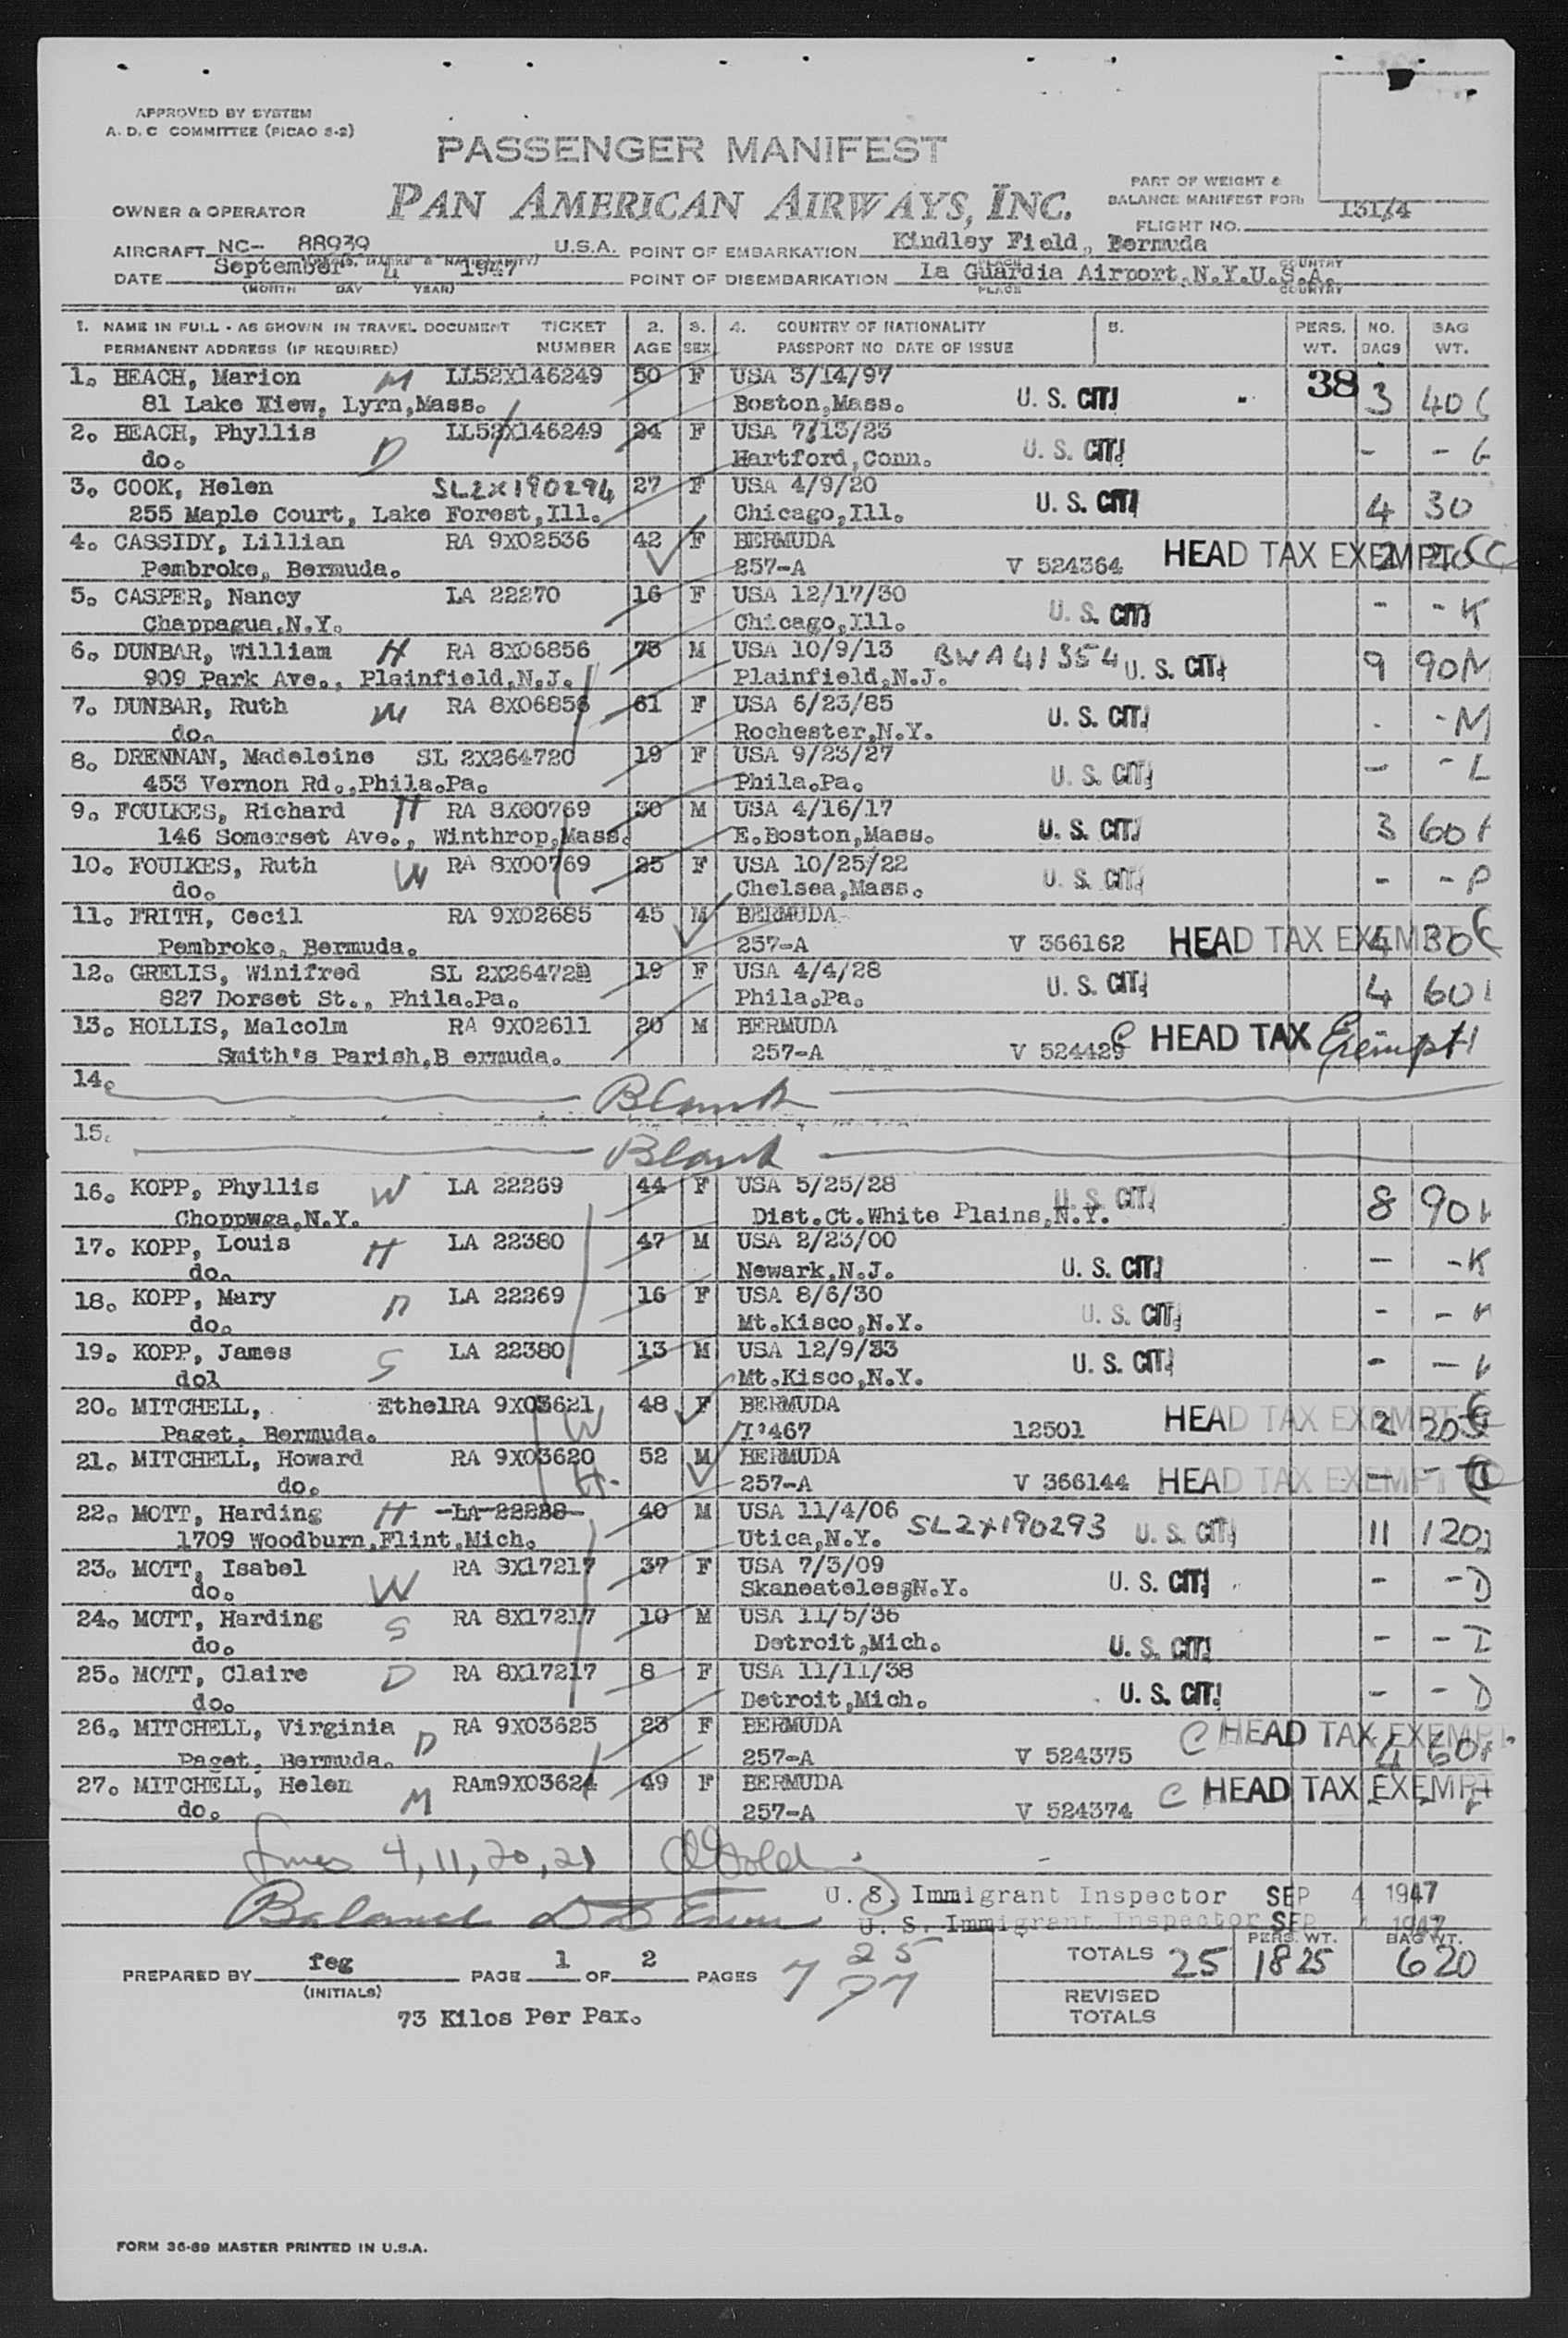 APPROVED BY SYSTEM
A. D. C COMMITTEE (PICAO S-2)
PASSENGER MANIFEST
PAN AMERICAN AIRWAYS, INC.
OWNER & OPERATOR
PART OF WEIGHT &
BALANCE MANIFEST FOR:
FLIGHT NO. 131/4
AIRCRAFT NC- 88939 U.S.A. POINT OF EMBARKATION Kindley Field, Bermuda
DATE September 4 1947 POINT OF DISEMBARKATION La Guardia Airport,N.Y.U.S.A.
(MONTH DAY YEAR) PLACE COUNTRY
1. NAME IN FULL - AS SHOWN IN TRAVEL DOCUMENT TICKET 2. 3. 4. COUNTRY OF NATIONALITY 5. PERS. NO. BAG
PERMANENT ADDRESS (IF REQUIRED) NUMBER AGE SEX PASSPORT NO DATE OF ISSUE WT. BAGS WT.
1. BEACH, Marion M LL52X146249 50 F USA 3/14/97 38
81 Lake View, Lyrn,Mass. Boston,Mass. U. S. CIT. 3 40
2. BEACH, Phyllis D LL52X146249 24 F USA 7/13/23
do. Hartford,Conn. U. S. CIT. - - G
3. COOK, Helen SL2X190294 27 F USA 4/9/20
255 Maple Court, Lake Forest,Ill. Chicago,Ill. U. S. CIT. 4 30
4. CASSIDY, Lillian RA 9X02536 42 F BERMUDA HEAD TAX EXEMPT
Pembroke, Bermuda. 257-A V 524364 2 20
5. CASPER, Nancy LA 22270 16 F USA 12/17/30
Chappagua,N.Y. Chicago,Ill. U. S. CIT. - - K
6. DUNBAR, William H RA 8X06856 73 M USA 10/9/13 BWA41354
909 Park Ave., Plainfield,N.J. Plainfield,N.J. U. S. CIT. 9 90M
7. DUNBAR, Ruth W RA 8X06856 61 F USA 6/23/85
do. Rochester,N.Y. U. S. CIT. - - M
8. DRENNAN, Madeleine SL 2X264720 19 F USA 9/23/27
453 Vernon Rd.,Phila.Pa. Phila.Pa. U. S. CIT. - - L
9. FOULKES, Richard H RA 8X00769 30 M USA 4/16/17
146 Somerset Ave., Winthrop,Mass. E.Boston,Mass. U. S. CIT. 3 60
10. FOULKES, Ruth W RA 8X00769 25 F USA 10/25/22
do. Chelsea,Mass. U. S. CIT. - - P
11. FRITH, Cecil RA 9X02685 45 M BERMUDA
Pembroke, Bermuda. 257-A V 366162 HEAD TAX EXEMPT 4 30
12. GRELIS, Winifred SL 2X26472 19 F USA 4/4/28
827 Dorset St., Phila.Pa. Phila.Pa. U. S. CIT. 4 60
13. HOLLIS, Malcolm RA 9X02611 20 M BERMUDA
Smith's Parish,B ermuda. 257-A V 524429 C HEAD TAX Exempt
14. Blank
15. Blank
16. KOPP, Phyllis W LA 22269 44 F USA 5/25/28
Choppwga,N.Y. Dist.Ct.White Plains,N.Y. U. S. CIT. 8 90
17. KOPP, Louis H LA 22380 47 M USA 2/23/00
do. Newark,N.J. U. S. CIT. - - K
18. KOPP, Mary D LA 22269 16 F USA 8/6/30
do. Mt.Kisco,N.Y. U. S. CIT. - -
19. KOPP, James S LA 22380 13 M USA 12/9/33
dol Mt.Kisco,N.Y. U. S. CIT. - -
20. MITCHELL, Ethel RA 9X03621 48 F BERMUDA HEAD TAX EXEMPT
Paget, Bermuda. W I'467 12501 2 20
21. MITCHELL, Howard RA 9X03620 52 M BERMUDA
do. H. 257-A V 366144 HEAD TAX EXEMPT - -
22. MOTT, Harding H LA 22288 40 M USA 11/4/06 SL2X190293
1709 Woodburn,Flint,Mich. Utica,N.Y. U. S. CIT. 11 120
23. MOTT, Isabel W RA 8X17217 37 F USA 7/3/09
do. Skaneateles,N.Y. U. S. CIT. - - D
24. MOTT, Harding S RA 8X17217 10 M USA 11/5/36
do. Detroit,Mich. U. S. CIT. - -
25. MOTT, Claire D RA 8X17217 8 F USA 11/11/38
do. Detroit,Mich. U. S. CIT. - - D
26. MITCHELL, Virginia D RA 9X03625 23 F BERMUDA C HEAD TAX EXEMPT
Paget, Bermuda. 257-A V 524375 4 60
27. MITCHELL, Helen M RAm9X03624 49 F BERMUDA C HEAD TAX EXEMPT
do. 257-A V 524374
Lines 4, 11, 20, 21
U. S. Immigrant Inspector SEP 4 1947
Balance
U. S. Immigrant Inspector SEP 4 1947
PREPARED BY feg PAGE 1 OF 2 PAGES
(INITIALS)
25
7 27
PERS. WT. BAG WT.
TOTALS 25 1825 620
REVISED
TOTALS
73 Kilos Per Pax.
FORM 36-89 MASTER PRINTED IN U.S.A.